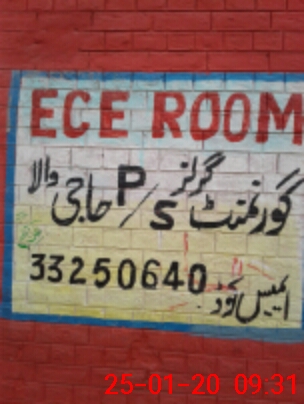 ECE ROOM
گورنمنٹ گرلز P/S حاجی والا
ایمیس کوڈ: 33250640
25-01-20 09:31